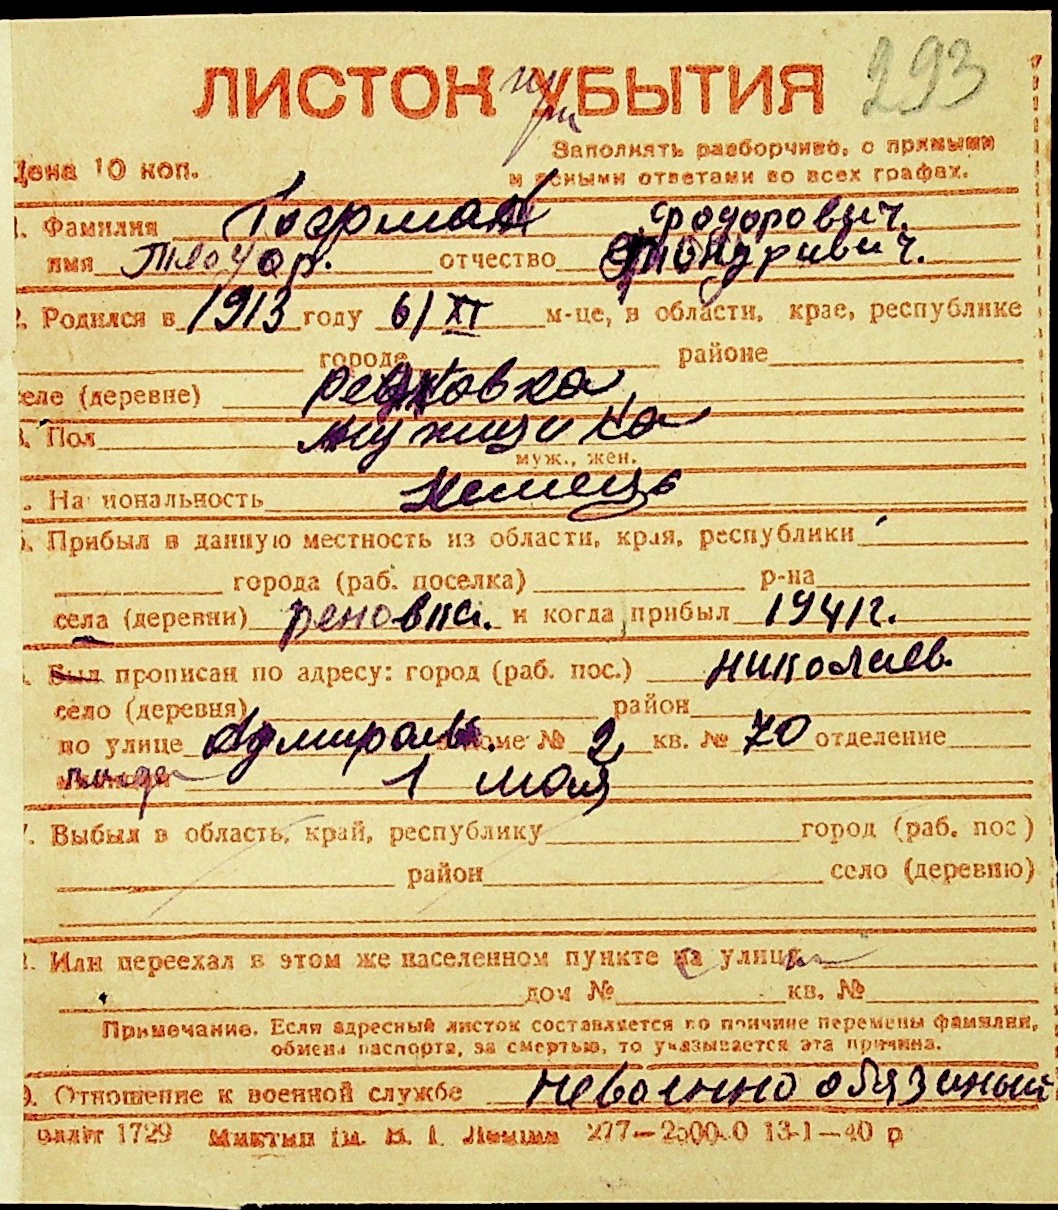 293
ЛИСТОК при УБЫТИЯ
Цена 10 коп.
Заполнять разборчиво, с прямыми
и ясными ответами во всех графах.
1. Фамилия Гоерман Фродорович.
имя Тиодор. отчество
2. Родился в 1913 году 6/XI м-це, в области, крае, республике
городе районе
селе (деревне)
3. Пол мужщика
муж., жен.
На иональность Немець
5. Прибыл в данную местность из области, края, республики
города (раб. поселка) р-на
села (деревни) реновка. и когда прибыл 1941г.
Был прописан по адресу: город (раб. пос.) николаев.
село (деревня) район
по улице Адмираль доме № 2 кв. № 70 отделение
1 мая
7. Выбыл в область, край, республику город (раб. пос)
район село (деревню)
8. Или переехал в этом же населенном пункте на улицу
дом № кв. №
Примечание. Если адресный листок составляется по причине перемены фамилии,
обмена паспорта, за смертью, то указывается эта причина.
9. Отношение к военной службе невоенно обязаный
1729 им. В. І. Леніна 277—25000 13-1—40 р